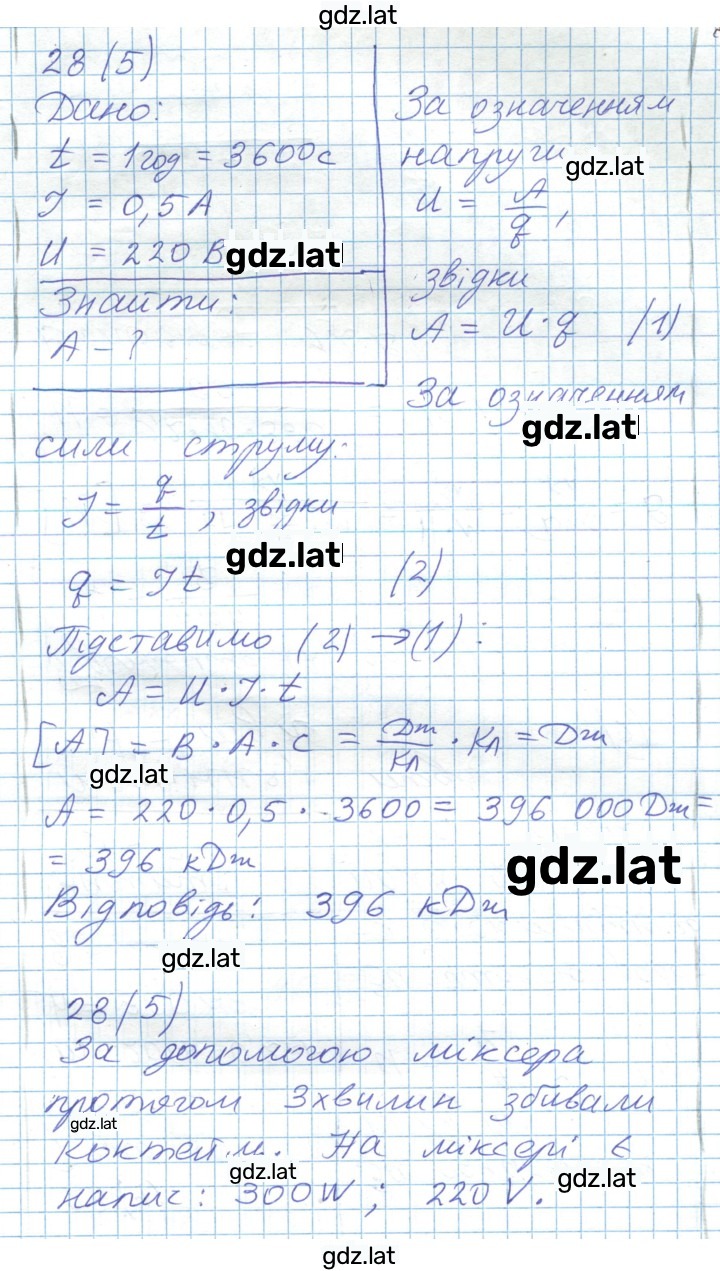 gdz.lat
28 (5)
Дано:
t = 1 год = 3600 с
I = 0,5 А
U = 220 В
gdz.lat
Знайти:
A - ?
За означенням
напруги
gdz.lat
U = A/q,
звідки
A = U·q (1)
За означенням
gdz.lat
сили струму:
I = q/t, звідки
gdz.lat
q = It (2)
Підставимо (2) → (1):
A = U·I·t
[A] = В·А·с = Дж/Кл · Кл = Дж
gdz.lat
A = 220·0,5·3600 = 396 000 Дж =
= 396 кДж
gdz.lat
Відповідь: 396 кДж
gdz.lat
28 (5)
За допомогою міксера
протягом 3 хвилин збивали
gdz.lat
На міксері є
gdz.lat
300 W; 220 V.
gdz.lat
gdz.lat